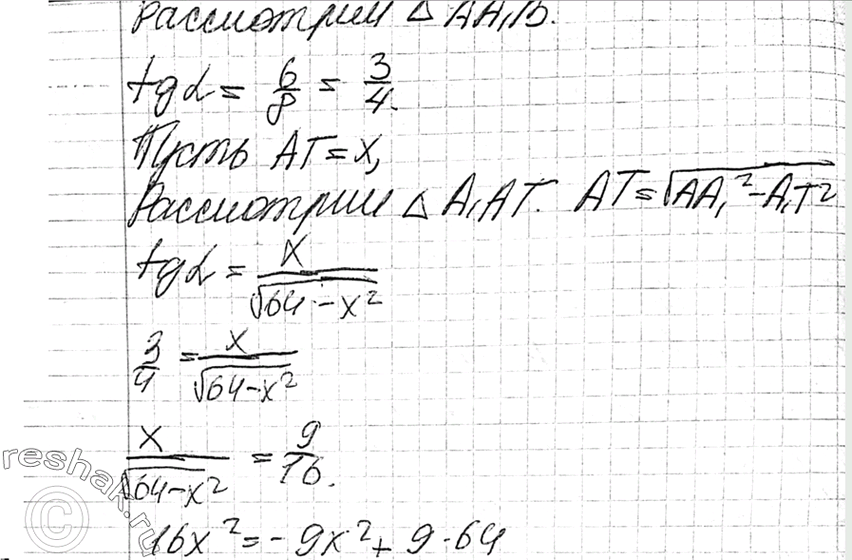 Рассмотрим △ AA₁B.
tgα = 6/8 = 3/4.
Пусть AT = x,
Рассмотрим △ A₁AT. AT = √(AA₁² - A₁T²)
tgα = x/√(64 - x²)
3/4 = x/√(64 - x²)
x/√(64 - x²) = 9/16.
16x² = - 9x² + 9·64
reshak.ru